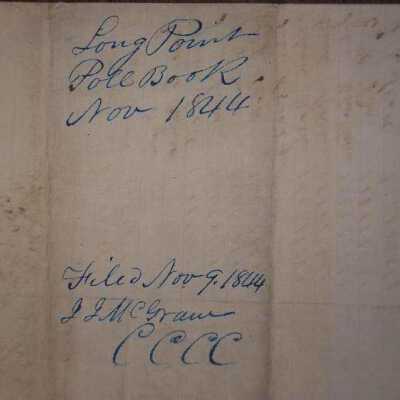 Long Point
Poll Book
Nov 1844
Filed Nov 9. 1844
J J McGraw
C C C C